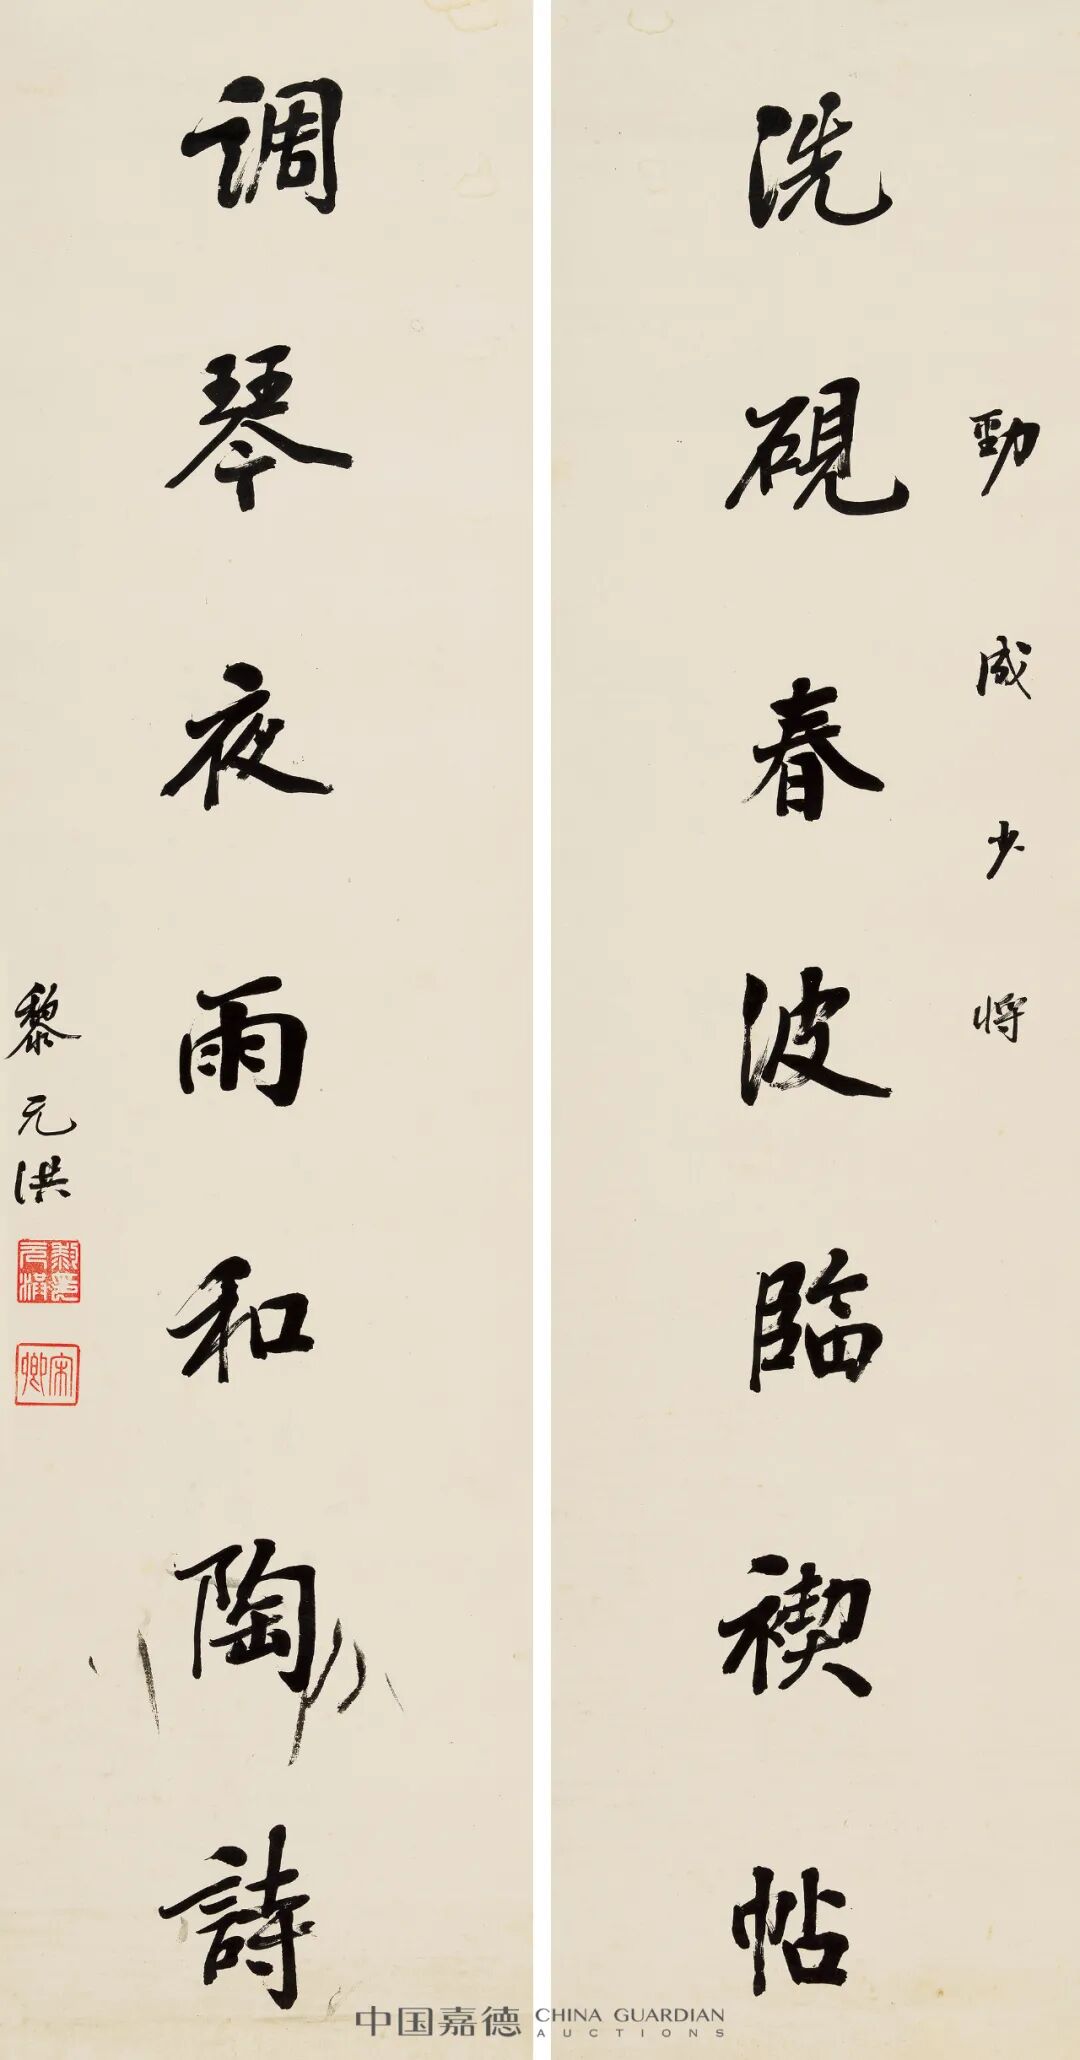 勁成少将
洗硯春波臨禊帖
调琴夜雨和陶詩
黎元洪
黎元洪
宋卿
中国嘉德 CHINA GUARDIAN AUCTIONS